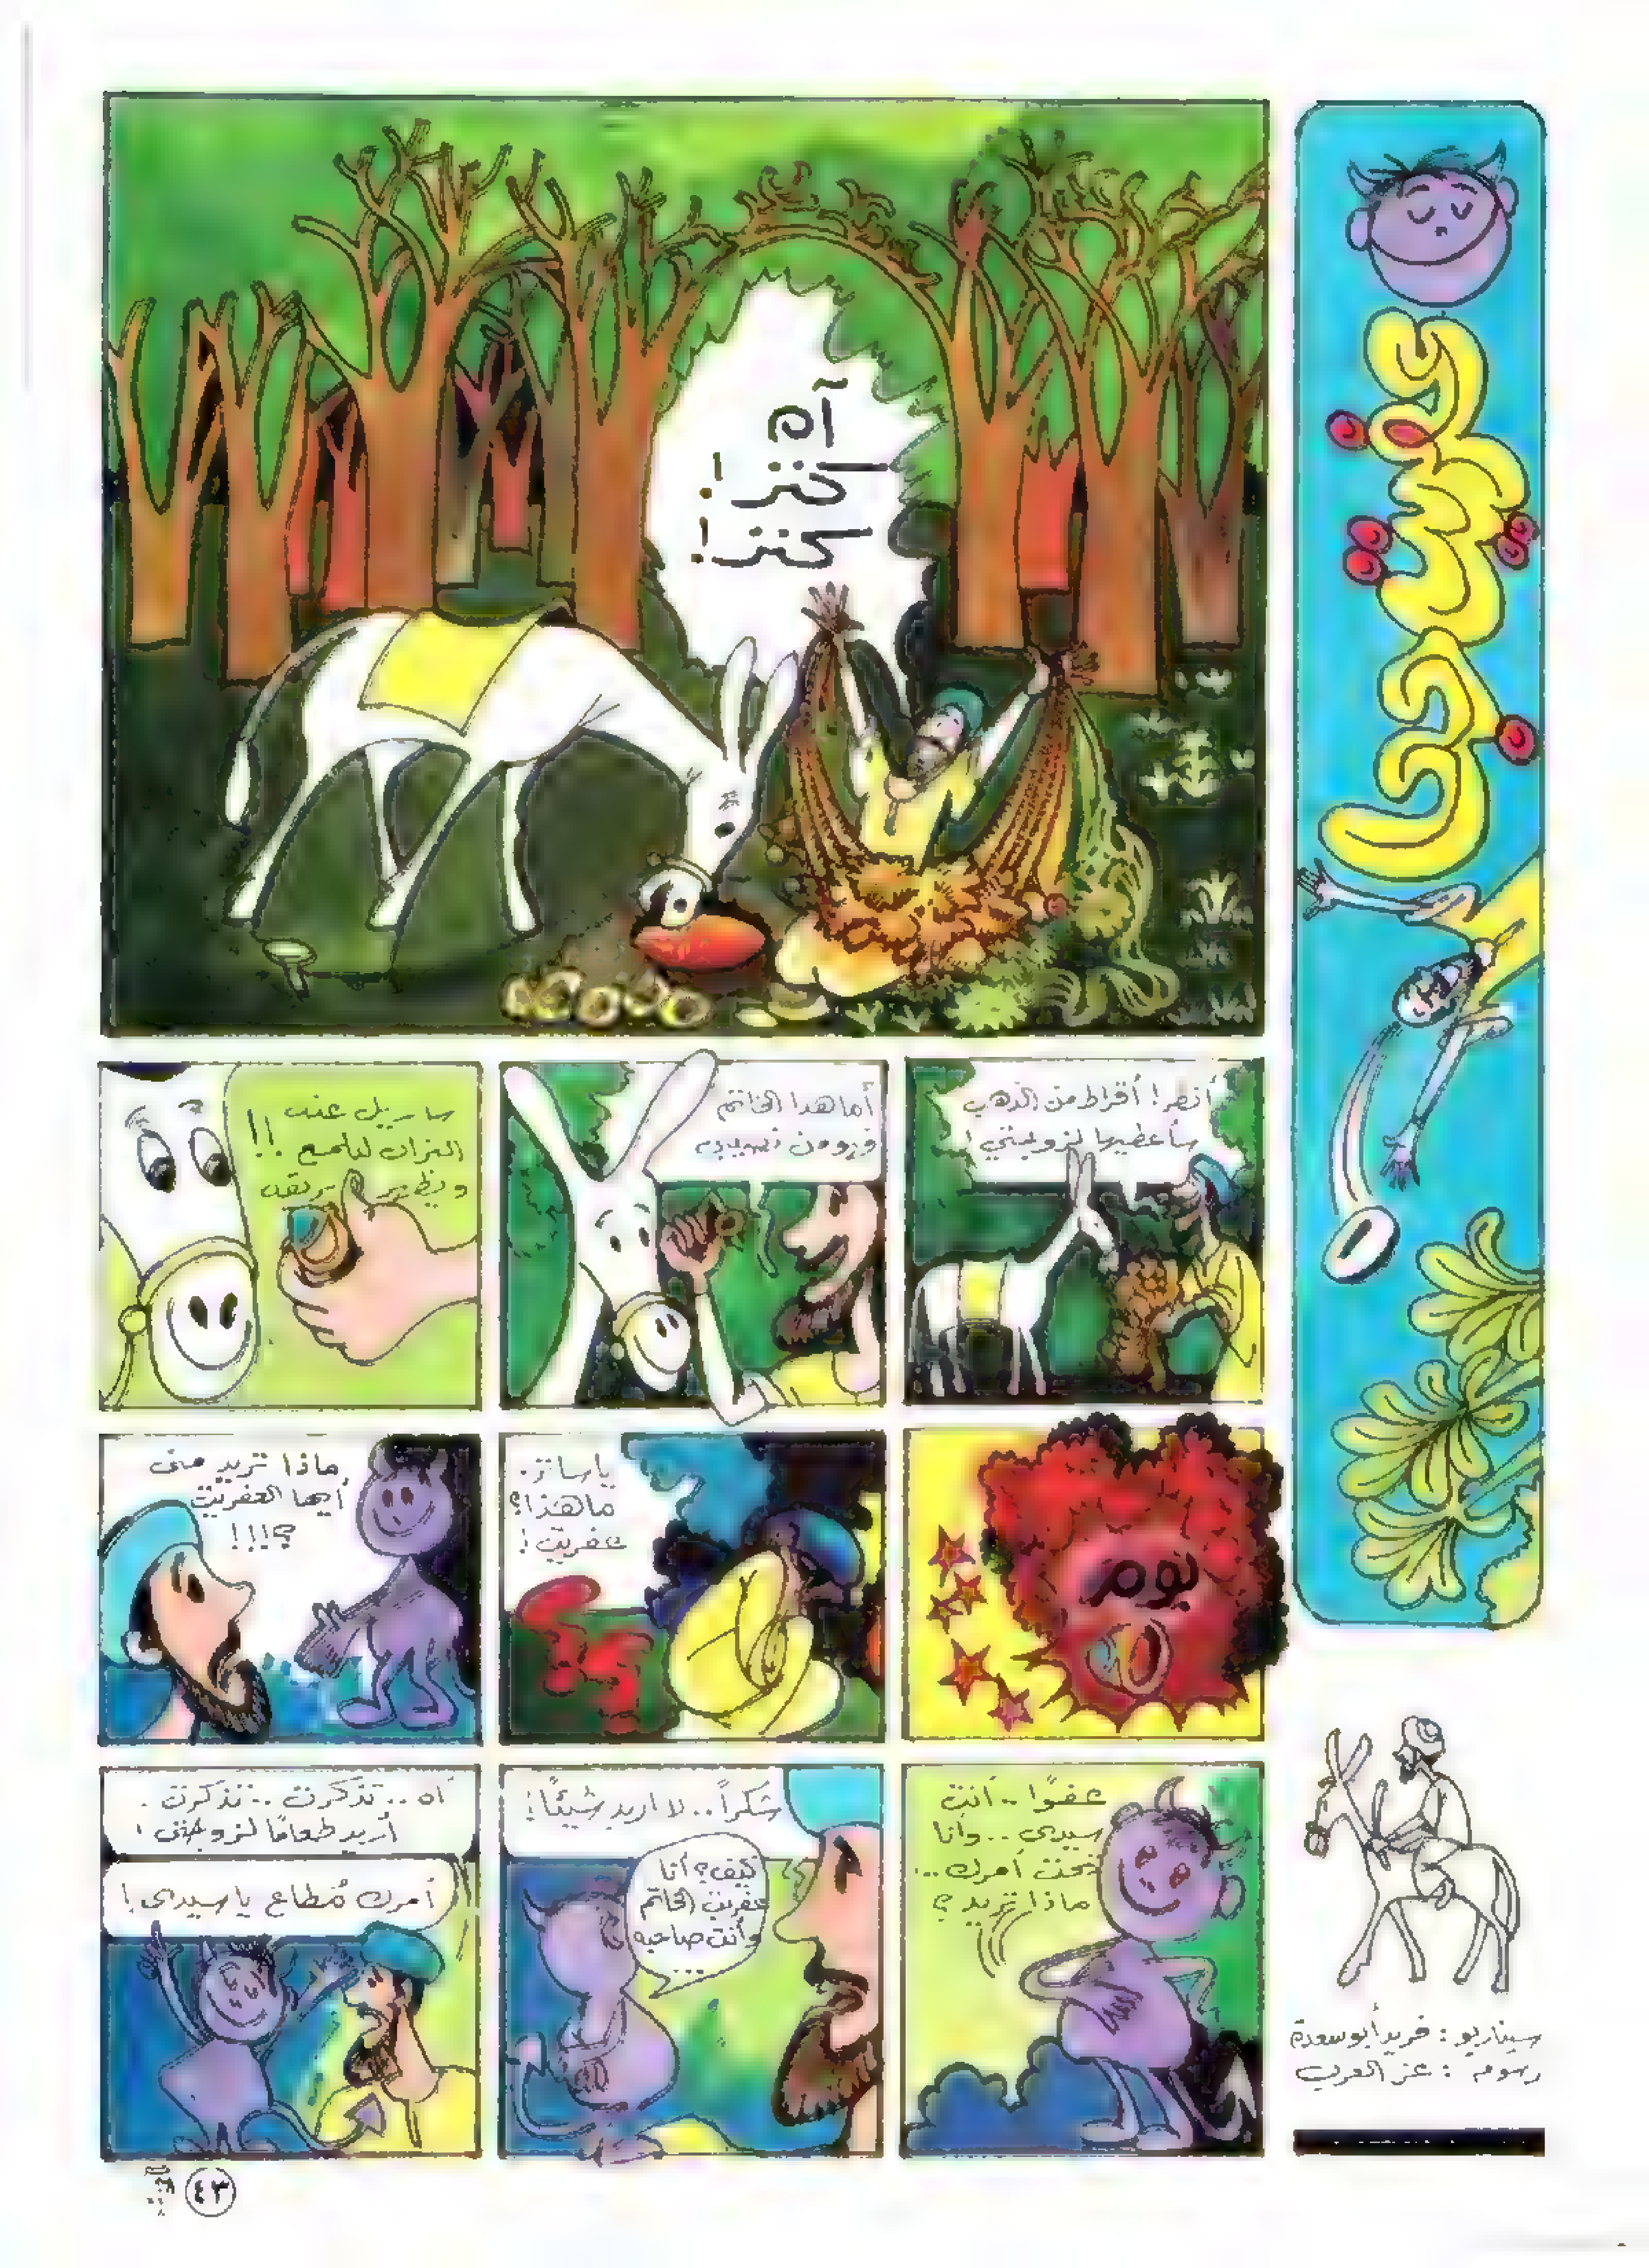 عفريت جحا
آه
كنز!
كنز!
أنظر! أقراط من الذهب
سأعطيها لزوجتي!
أما هذا الخاتم
فهو من نصيبي
سأزيل عنه
التراب ليلمع!!
ويظهر بريقه
بوم
يا ساتر.
ما هذا؟
عفريت!
ماذا تريد منى
أيها العفريت
؟!!!
عفوًا.. أنت
سيدى.. وأنا
تحت أمرك...
ماذا تريد؟
شكراً.. لا أريد شيئًا!
كيف؟ أنا
عفريت الخاتم
وأنت صاحبه
...
آه.. تذكرت.. تذكرت.
أريد طعامًا لزوجتى!
أمرك مُطاع يا سيدى!
سيناريو: فريد أبو سعدة
رسوم: عز العرب
٤٣